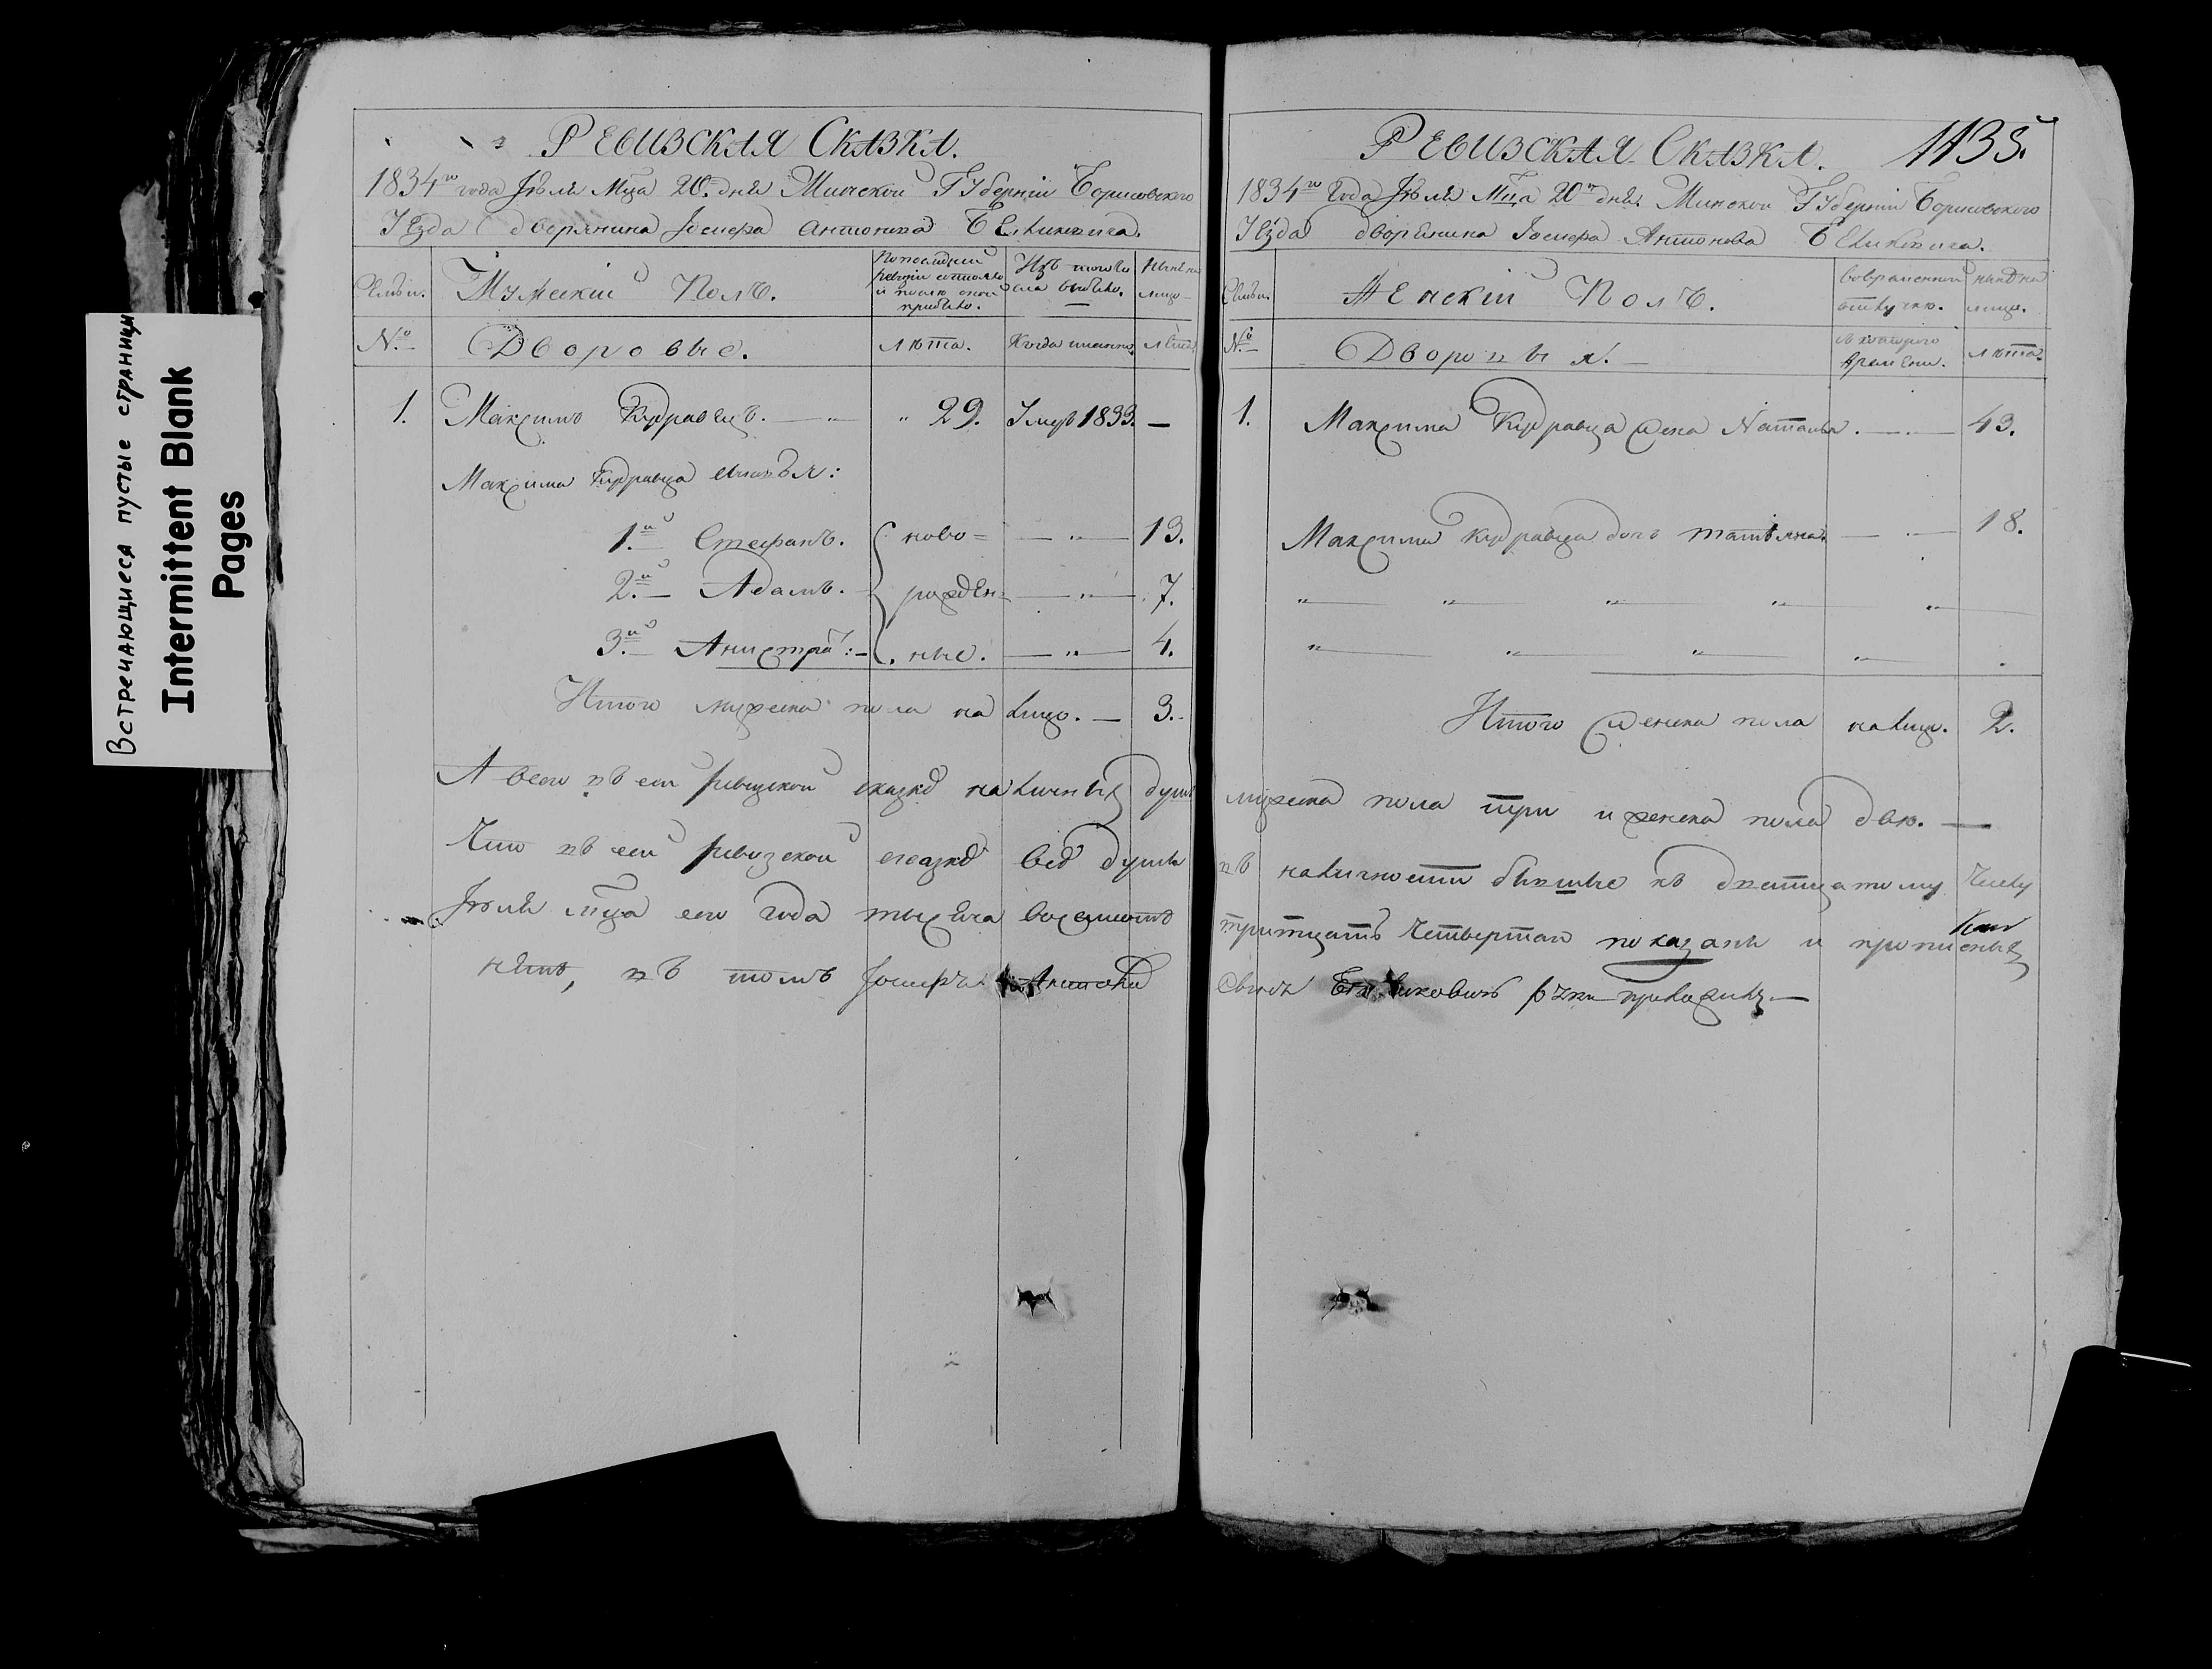 Встречающиеся пустые страницы
Intermittent Blank
Pages
РЕВИЗСКАЯ СКАЗКА.
1834го года Июля Мца 20. дня Минской Губерніи Борисовского
Уезда дворянина Іосифа Антонова
Семьи. Мужескій Полъ.
По последней ревизіи состояло и после оной прибыло.
Изъ того числа выбыло.
Ныне на лицо
No. Дворовые. Лета. Когда именно. Лета.
1. Максимъ Кудравецъ. 29. Умеръ 1833. —
Максима Кудравца сыновья:
1й Стефанъ. ново= 13.
2й Адамъ. рожден= 7.
3й ные. 4.
Итого мужеска пола на лицо. — 3.
А всего въ сей ревизской сказке наличныхъ душъ
Что въ сей ревизской сказке все души
Июля мца сего года тысяча восемсотъ
нетъ, въ томъ Іосифъ Антоновъ
РЕВИЗСКАЯ СКАЗКА. 1135.
1834го Года Июля Мца 20го дня. Минской Губерніи Борисовского
Уезда дворянина Іосифа Антонова
Семьи. Женскій Полъ.
Во временной отлучке.
Ныне на лицо.
No. Дворовыя. — Съ которого времени. Лета.
1. Максима Кудравца жена Наталья. — 43.
Максима Кудравца дочь Татьяна. — 18.
Итого женска пола на лицо. 2.
мужеска пола три и женска пола две. —
въ наличности бывшые къ двадцатому Числу
тритцать Четвертаго показаны и прописныхъ
сынъ руки приложилъ —